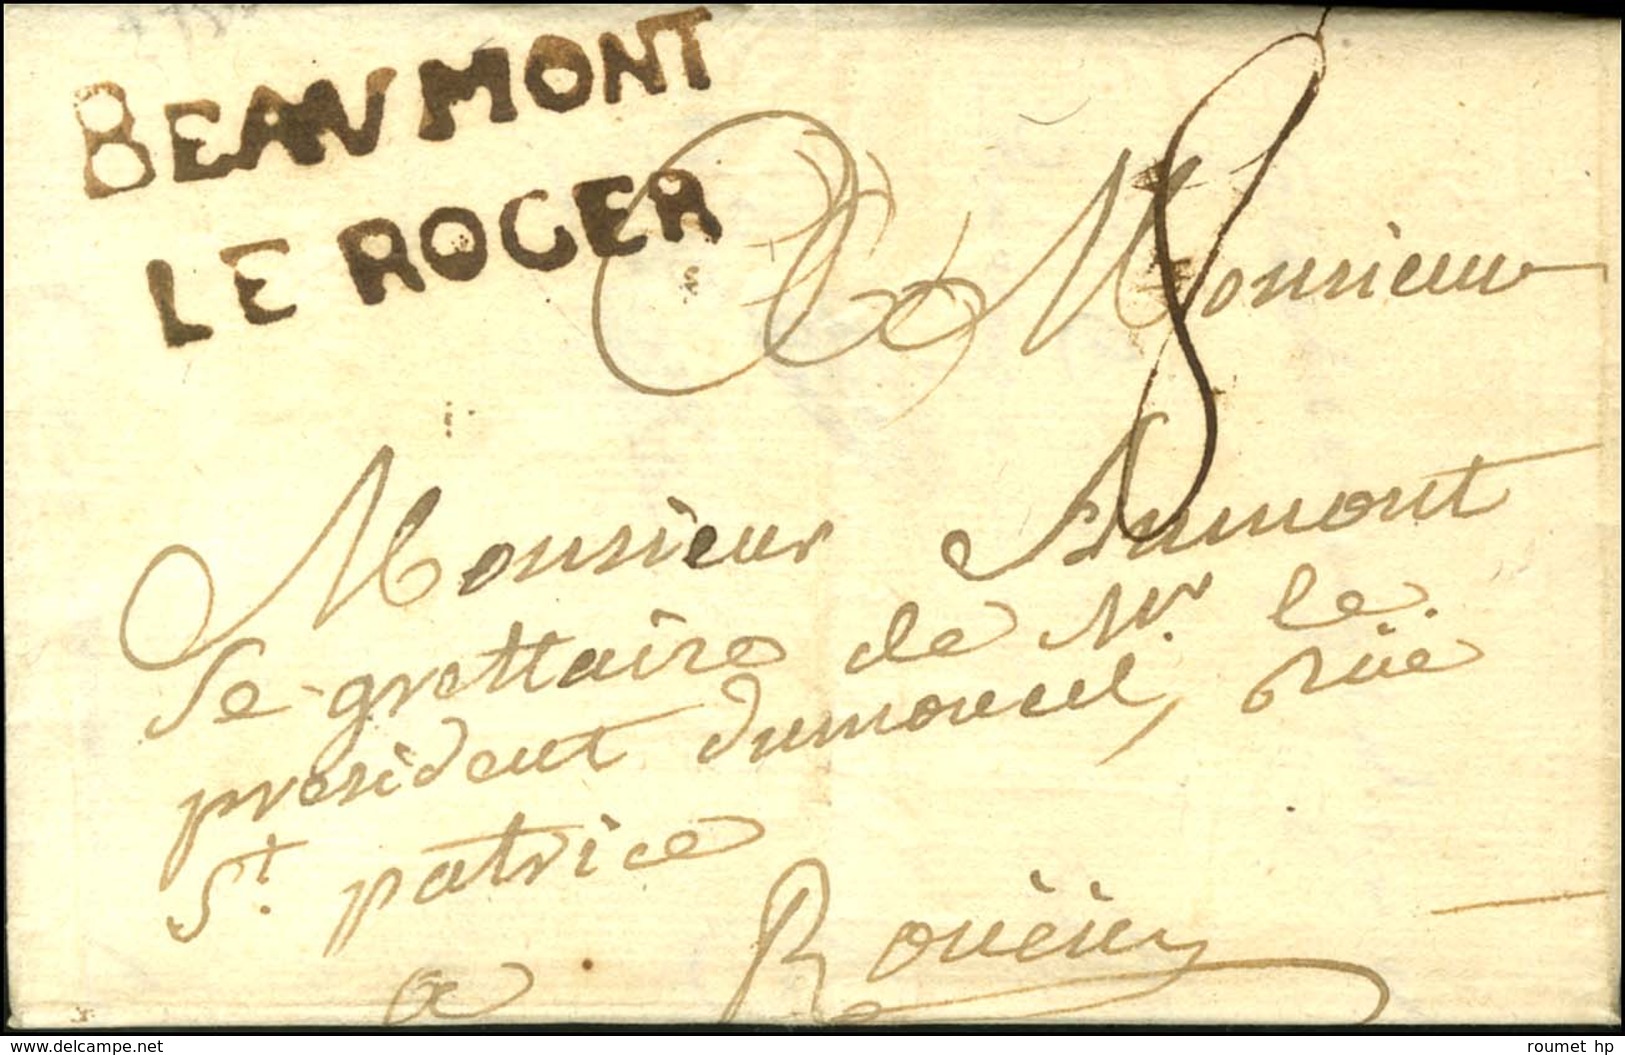 BEAUMONT
LE ROGER
8
A Monsieur
Monsieur Aumont
Se-grettaire de Mr. le
president dumoucel, rüe
St. patrice
a Roüen
www.delcampe.net
roumet hp